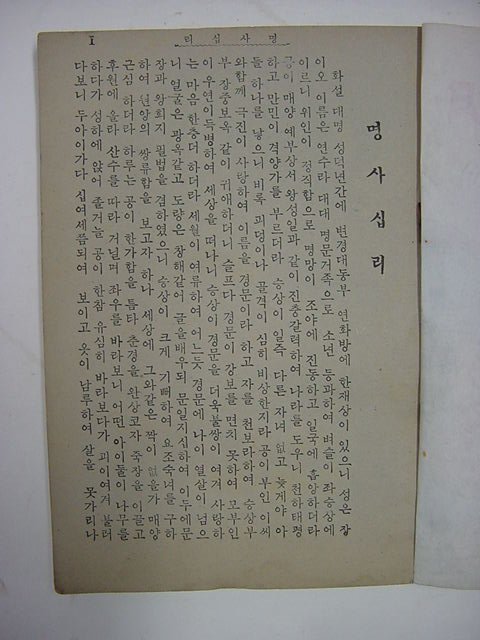 리십사명
I
명사십리
화설 대명 성덕년간에 변경대동부 연화방에 한재상이 있으니 성은 장
이오 이름은 연수라 대대 명문거족으로 소년 등과하여 벼슬이 좌승상에
이르니 위인이 정직함으로 명망이 조야에 진동하고 일국에 흠앙하더라
공이 매양 예부상서 왕성일과 같이 진충갈력하여 나라를 도우니 천하태평
하고 만민이 격양가를 부르더라 승상이 일즉 다른 자녀 없고 늦게야 아
들 하나를 낳으니 비록 피덩이나 골격이 심히 비상한지라 공이 부인 이씨
와함께 극진이 사랑하여 이름을 경문이라 하고 자를 천보라하여 승상부
부 장중보옥 같이 귀애하더니 슬프다 경문이 강보를 면치 못하여 모부인
이 우연이득병하여 세상을 떠나니 승상이 경문을 더욱불쌍이 여겨 사랑하
는 마음 한층더 하더라 세월이 여류하여 어느듯 경문에 나이 열살이 넘으
니 얼굴은 관옥같고 도량은 창해같어 글을배우되 문일지십하여 이두에문
장과 왕희지 필법을 겸하였으니 승상이 크게 기뻐하여 요조숙녀를 구하
하여 원앙의 쌍류합을 보고자 하나 세상에 그와같은 짝이 없을가 매양
근심 하더라 하루는 공이 한가함을 틈타 춘경을 완상코자 죽장을 이끌고
후원에 올라 산수를 따라 거닐며 좌우를 바라보니 어떤 아이둘이 나무를
하다가 성하에 앉어 졸거늘 공이 한참 유심히 바라보다가 괴이여겨 불러
다보니 두아이가다 십여세쯤되여 보이고 옷이 남루하여 살을 못가리나